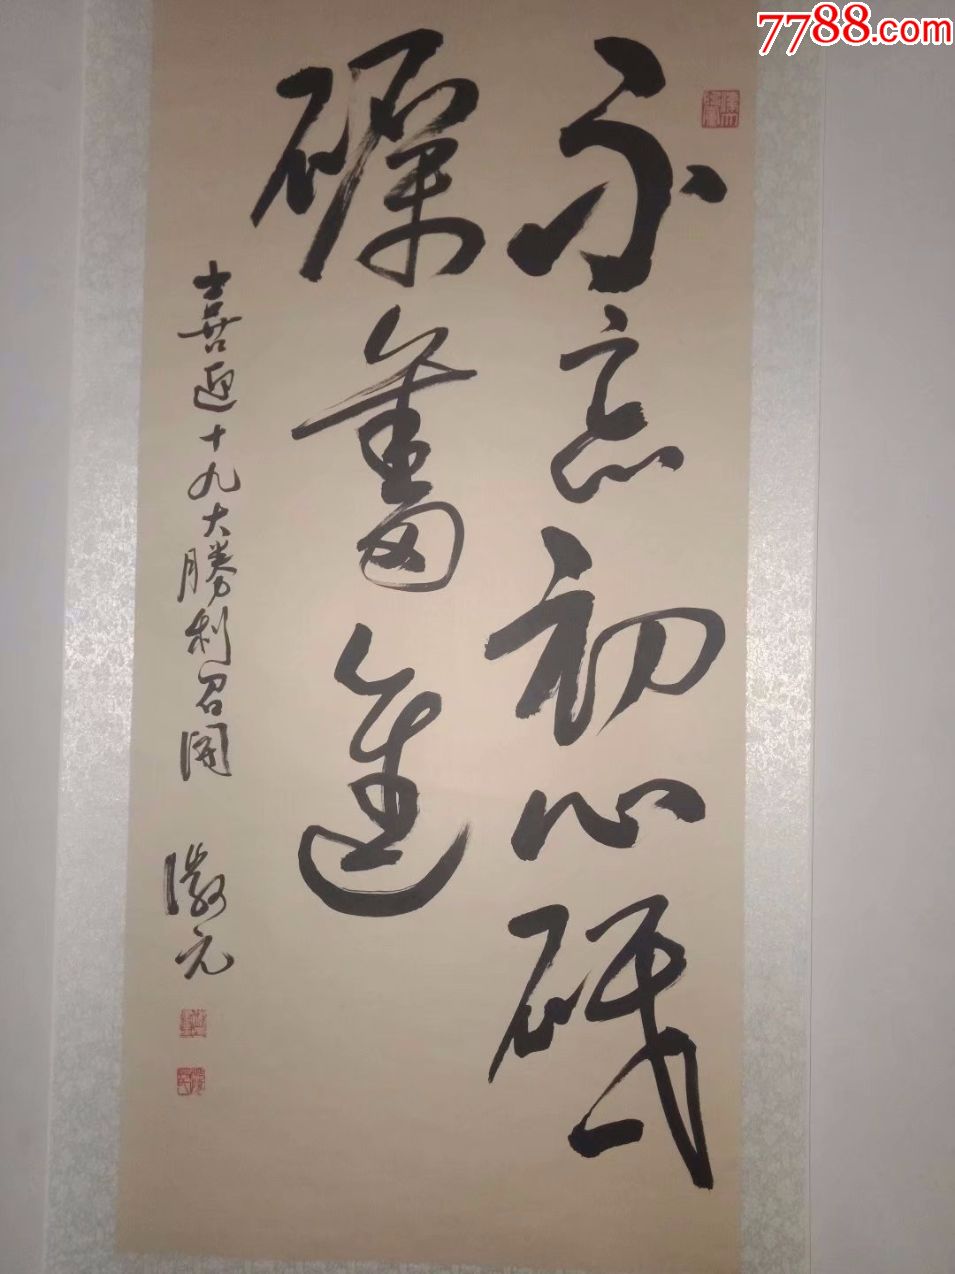 7788.com
不忘初心砥
礪奮進
喜迎十九大勝利召開
元